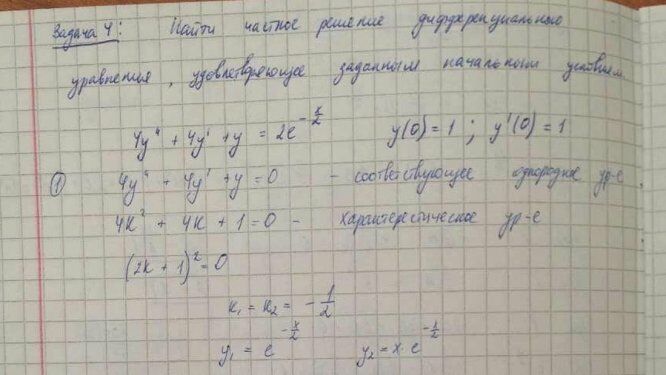 Задача 4: Найти частное решение дифференциального
уравнения, удовлетворяющее заданным начальным условиям
4y'' + 4y' + y = 2e^{-x/2} y(0) = 1 ; y'(0) = 1
① 4y'' + 4y' + y = 0 - соответствующее однородное ур-е
4k² + 4k + 1 = 0 - характеристическое ур-е
(2k + 1)² = 0
k₁ = k₂ = -1/2
y₁ = e^{-x/2} y₂ = x·e^{-x/2}